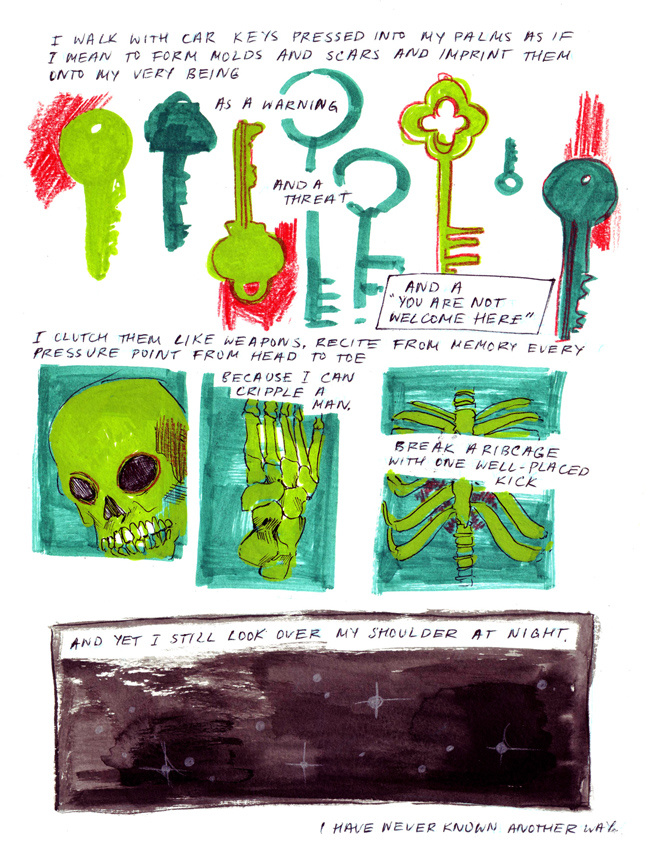 I WALK WITH CAR KEYS PRESSED INTO MY PALMS AS IF
I MEAN TO FORM MOLDS AND SCARS AND IMPRINT THEM
ONTO MY VERY BEING
AS A WARNING
AND A
THREAT
AND A
"YOU ARE NOT
WELCOME HERE"
I CLUTCH THEM LIKE WEAPONS, RECITE FROM MEMORY EVERY
PRESSURE POINT FROM HEAD TO TOE
BECAUSE I CAN
CRIPPLE A
MAN.
BREAK A RIBCAGE
WITH ONE WELL-PLACED
KICK
AND YET I STILL LOOK OVER MY SHOULDER AT NIGHT.
I HAVE NEVER KNOWN ANOTHER WAY.